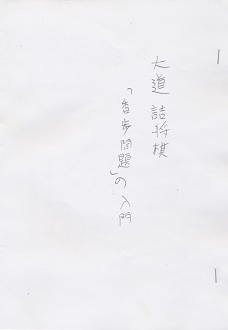 大道詰将棋
「香歩問題」の入門